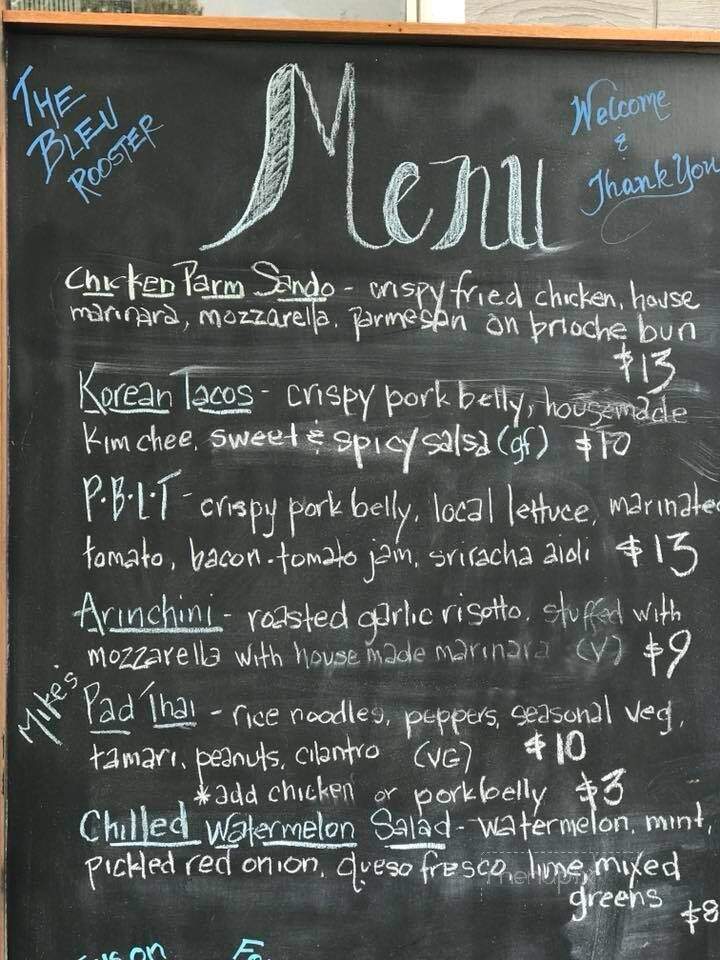 THE
BLEU
ROOSTER
Menu
Welcome
&
Thank You
Chicken Parm Sando - crispy fried chicken, house
marinara, mozzarella, parmesan on brioche bun
$13
Korean Tacos - crispy pork belly, housemade
Kim chee, sweet & spicy salsa (gf) $10
P.B.L.T - crispy pork belly, local lettuce, marinated
tomato, bacon-tomato jam, sriracha aioli $13
Arinchini - roasted garlic risotto, stuffed with
mozzarella with house made marinara (V) $9
Mike's
Pad Thai - rice noodles, peppers, seasonal veg,
tamari, peanuts, cilantro (VG) $10
*add chicken or pork belly $3
Chilled Watermelon Salad - watermelon, mint,
pickled red onion, queso fresco, lime, mixed
greens
$8